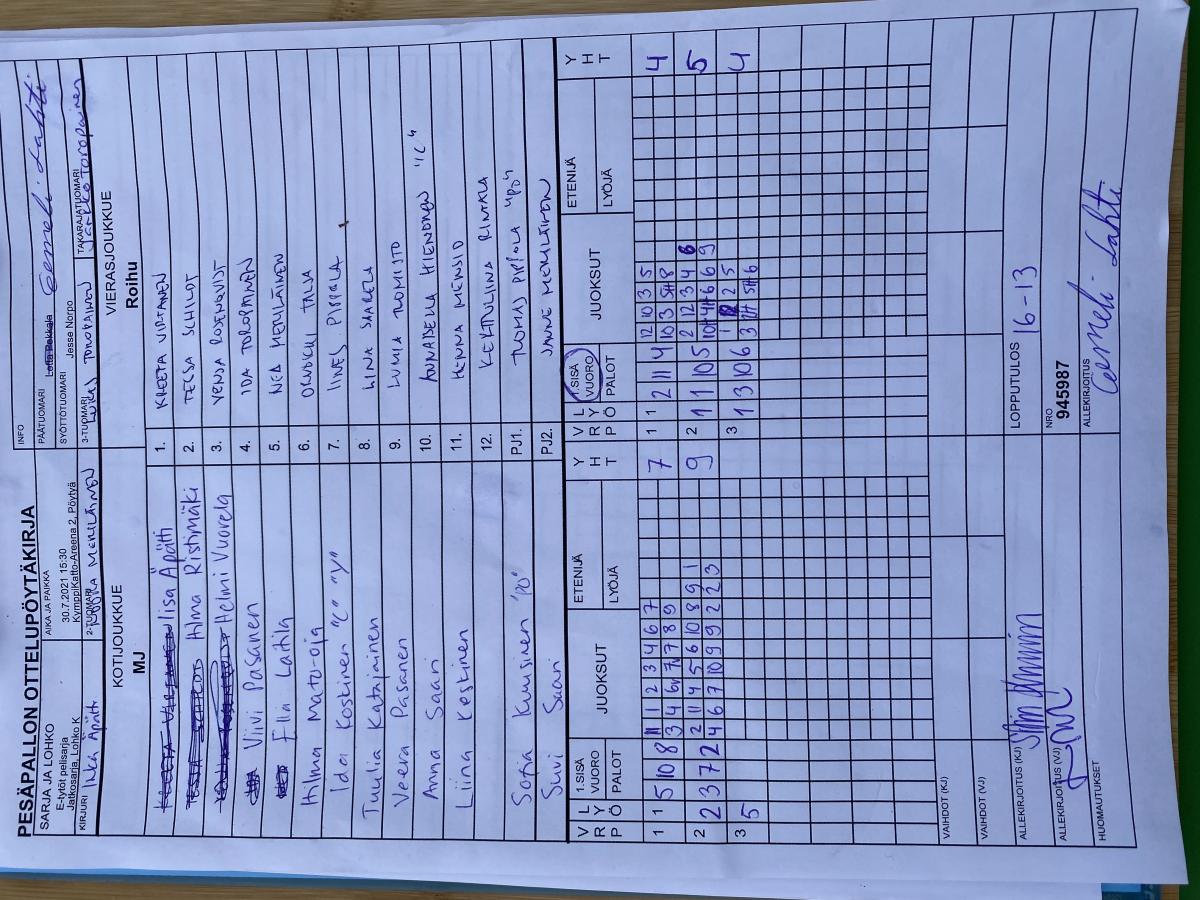 PESÄPALLON OTTELUPÖYTÄKIRJA
SARJA JA LOHKO
E-tytöt pelisarja
Jatkosarja, Lohko K
AIKA JA PAIKKA
30.7.2021 15:30
KymppiKatto-Areena 2, Pöytyä
INFO
PÄÄTUOMARI Lotta Pekkala Eemeli Lahti
SYÖTTÖTUOMARI Jesse Norpo
KIRJURI Ilkka Äpätti
2-TUOMARI JUKKA MERILÄINEN
3-TUOMARI LUKAS TOROPAINEN
TAKARAJATUOMARI Jarkko Toropainen
KOTIJOUKKUE
MJ
VIERASJOUKKUE
Roihu
Iisa Äpätti
1. KREETA VIRTANEN
Hilma Ristimäki
2. TESSA SCHILOT
Helmi Vuorela
3. VENJA ROSENQVIST
Viivi Pasanen
4. IDA TOROPAINEN
Ella Laitila
5. NEA MERILÄINEN
Hilma Mato-oja
6. ORVOKKI TALJA
Ida Koskinen "C" "Y"
7. IINES PIPPOLA
Tuulia Katajainen
8. LINA SAARELA
Veera Pasanen
9. LUMIA TUOMISTO
Anna Saari
10. ANNABELLA HIENONEN "C"
Liina Keskinen
11. HENNA MENSIO
12. KERTTULIINA RINTALA
Sofia Kuusinen "PO"
PJ1. TUOMAS PIPPOLA "PO"
Suvi Saari
PJ2. JANNE MERILÄINEN
V R P
L Y Ö
1.SISÄ VUORO
PALOT
JUOKSUT
ETENIJÄ
LYÖJÄ
Y H T
V R P
L Y Ö
1.SISÄ VUORO
PALOT
JUOKSUT
ETENIJÄ
LYÖJÄ
Y H T
1 1 5 10 8
11 1 2 3 4 6 7
3 4 6v 7v 7 8 9
7
1 1 2 11 4
12 10 3 5
10 3 5H 8
4
2 2 3 7 2
2 11 4 5 6 10 8 9 1
4 6 7 10 9 9 2 2 3
9
2 1 11 10 5
2 12 3 4 6
10H 4H 6 6 9
5
3 5
3 1 3 10 6
2 5
3 5H 6
4
VAIHDOT (KJ)
VAIHDOT (VJ)
ALLEKIRJOITUS (KJ)
LOPPUTULOS 16-13
ALLEKIRJOITUS (VJ)
NRO
945987
HUOMAUTUKSET
ALLEKIRJOITUS
Eemeli Lahti